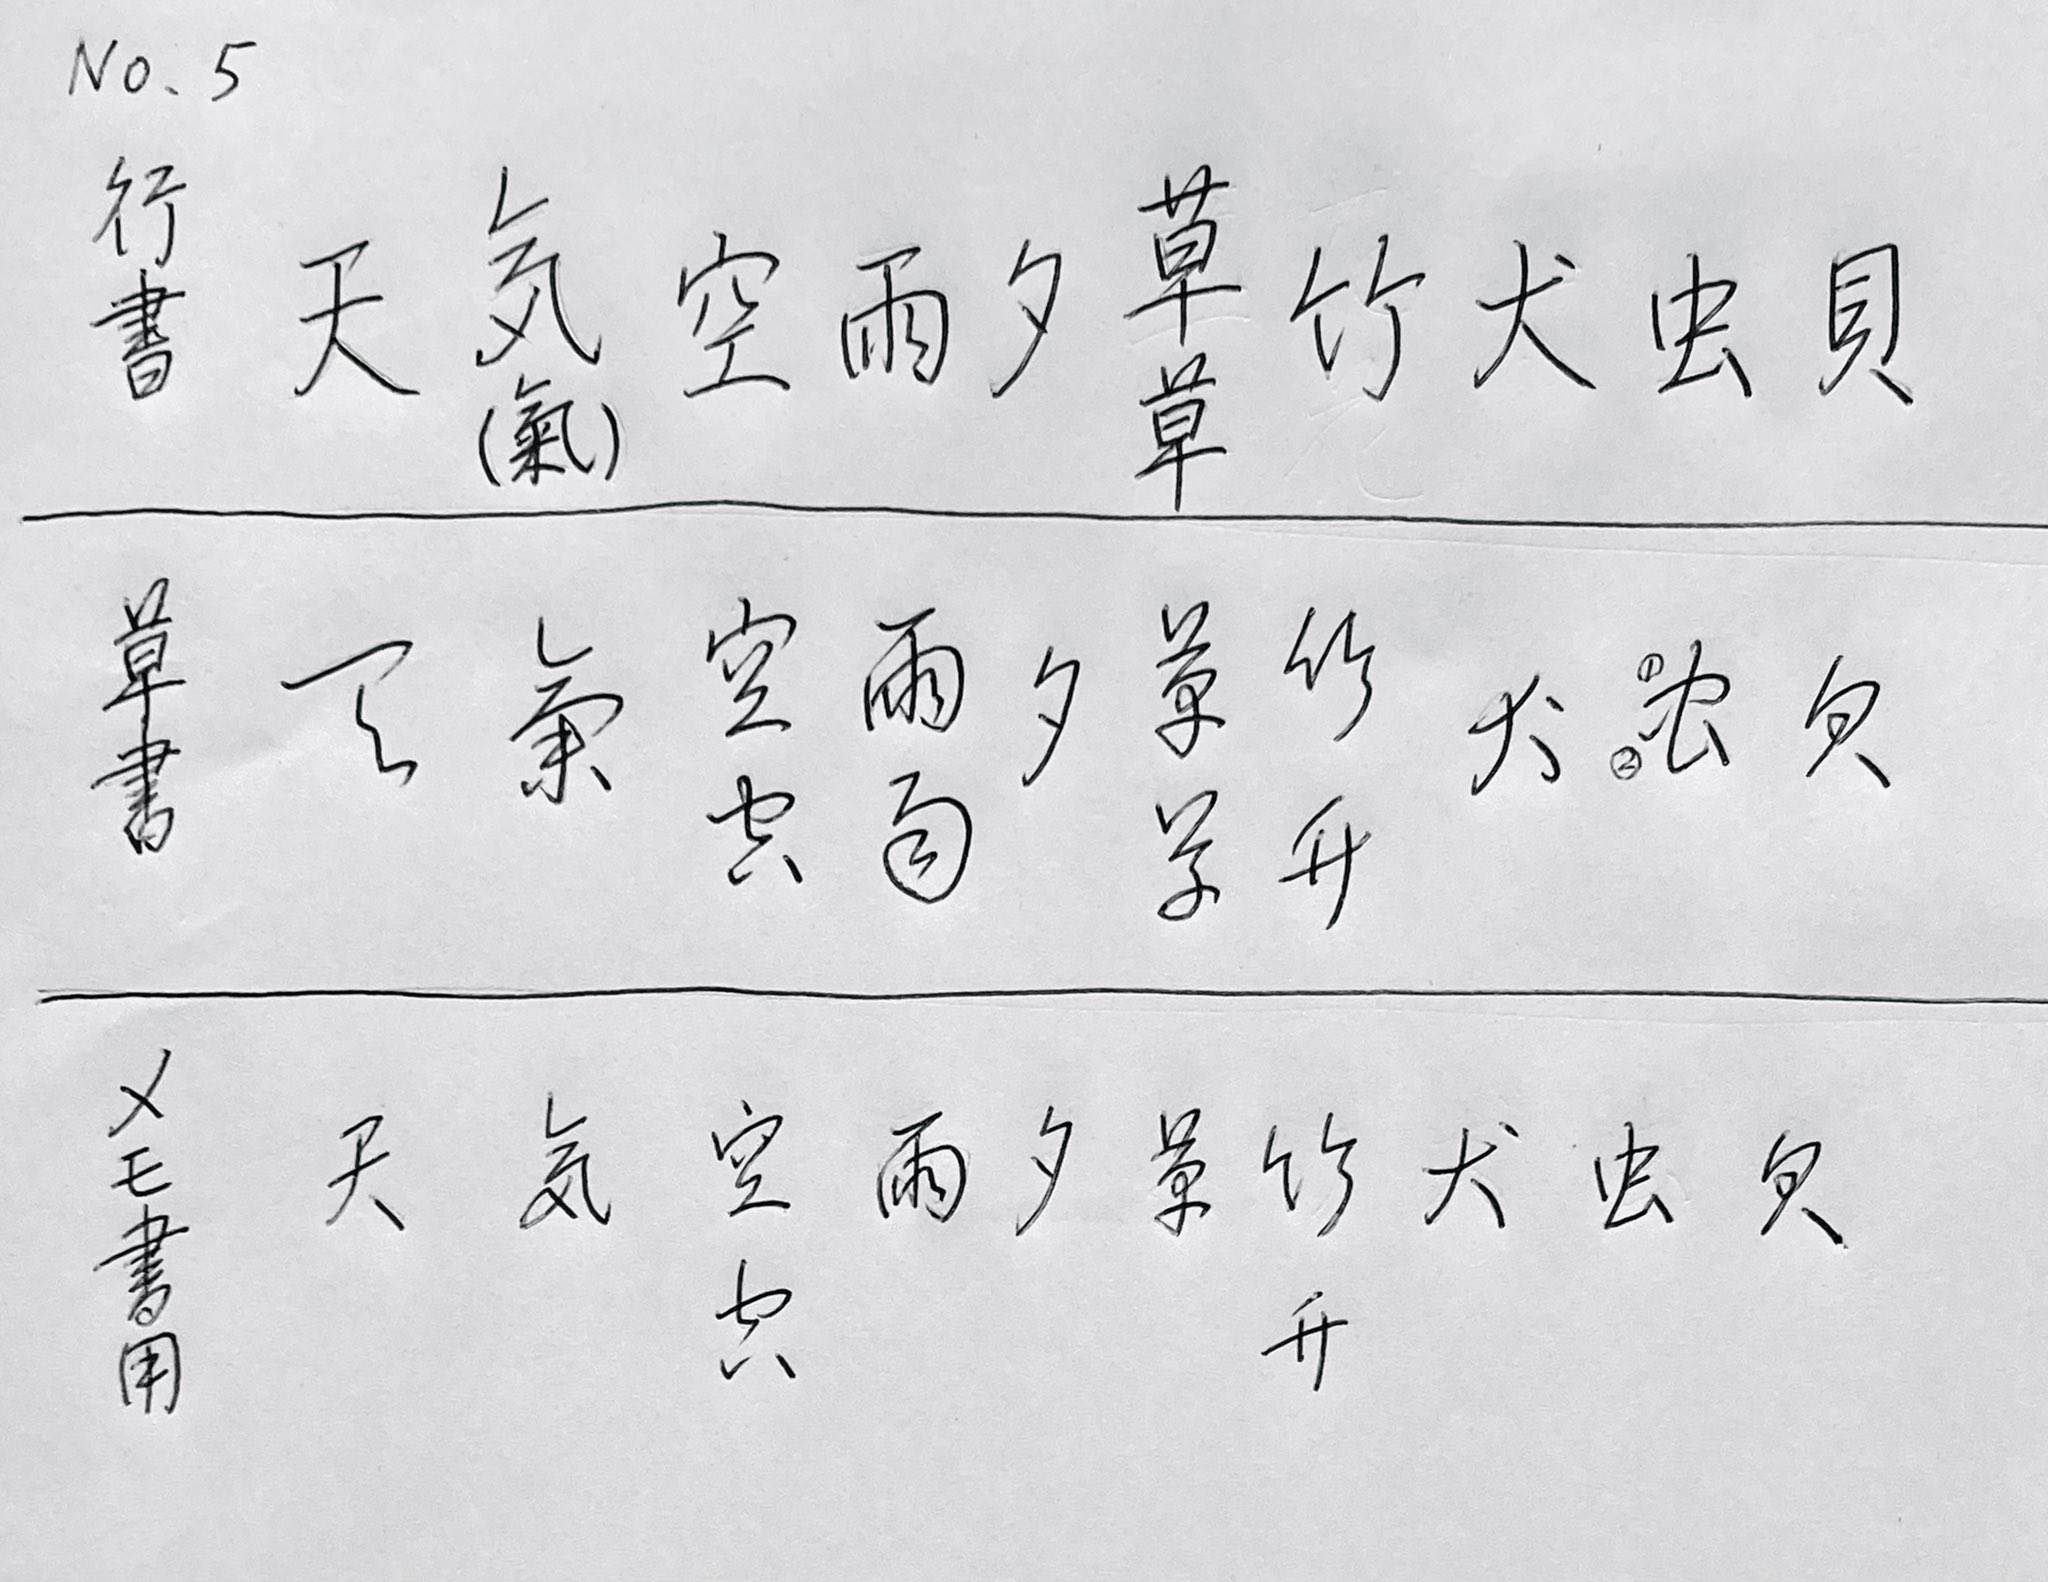 No. 5
行書 天 気 空 雨 夕 草 竹 犬 虫 貝
(氣) 草
草書 天 氣 空 雨 夕 草 竹 犬 ①②虫 貝
空 雨 草 竹
メモ書用 天 気 空 雨 夕 草 竹 犬 虫 貝
空 竹